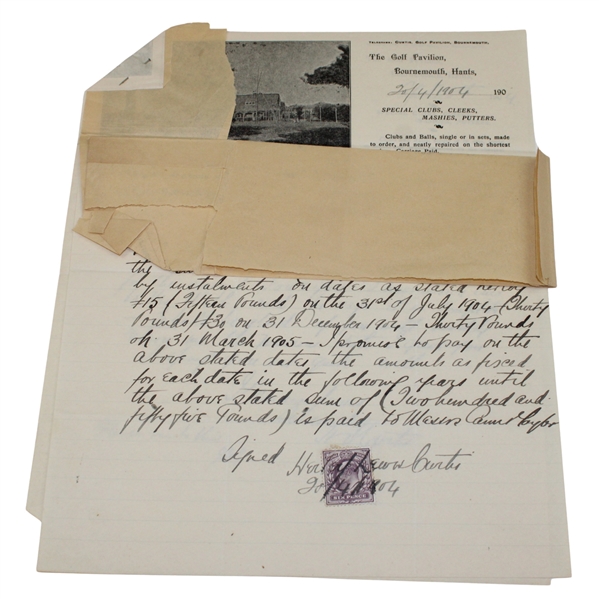 TELEGRAMS: CURTIS GOLF PAVILION, BOURNEMOUTH.
The Golf Pavilion,
Bournemouth, Hants,
20/4/1904 190
SPECIAL CLUBS, CLEEKS,
MASHIES, PUTTERS.
Clubs and Balls, single or in sets, made
to order, and neatly repaired on the shortest
Carriage Paid
the
by instalments on dates as stated hereby
£15 (Fifteen Pounds) on the 31st of July 1904 – (Thirty
Pounds) £30 on 31 December 1904 – Thirty Pounds
on 31 March 1905 – I promise to pay on the
above stated dates the amounts as fixed
for each date in the following years until
the above stated sum of (Two hundred and
fifty five Pounds) is paid to Messrs
Signed Lewis Curtis
1904
SIX PENCE